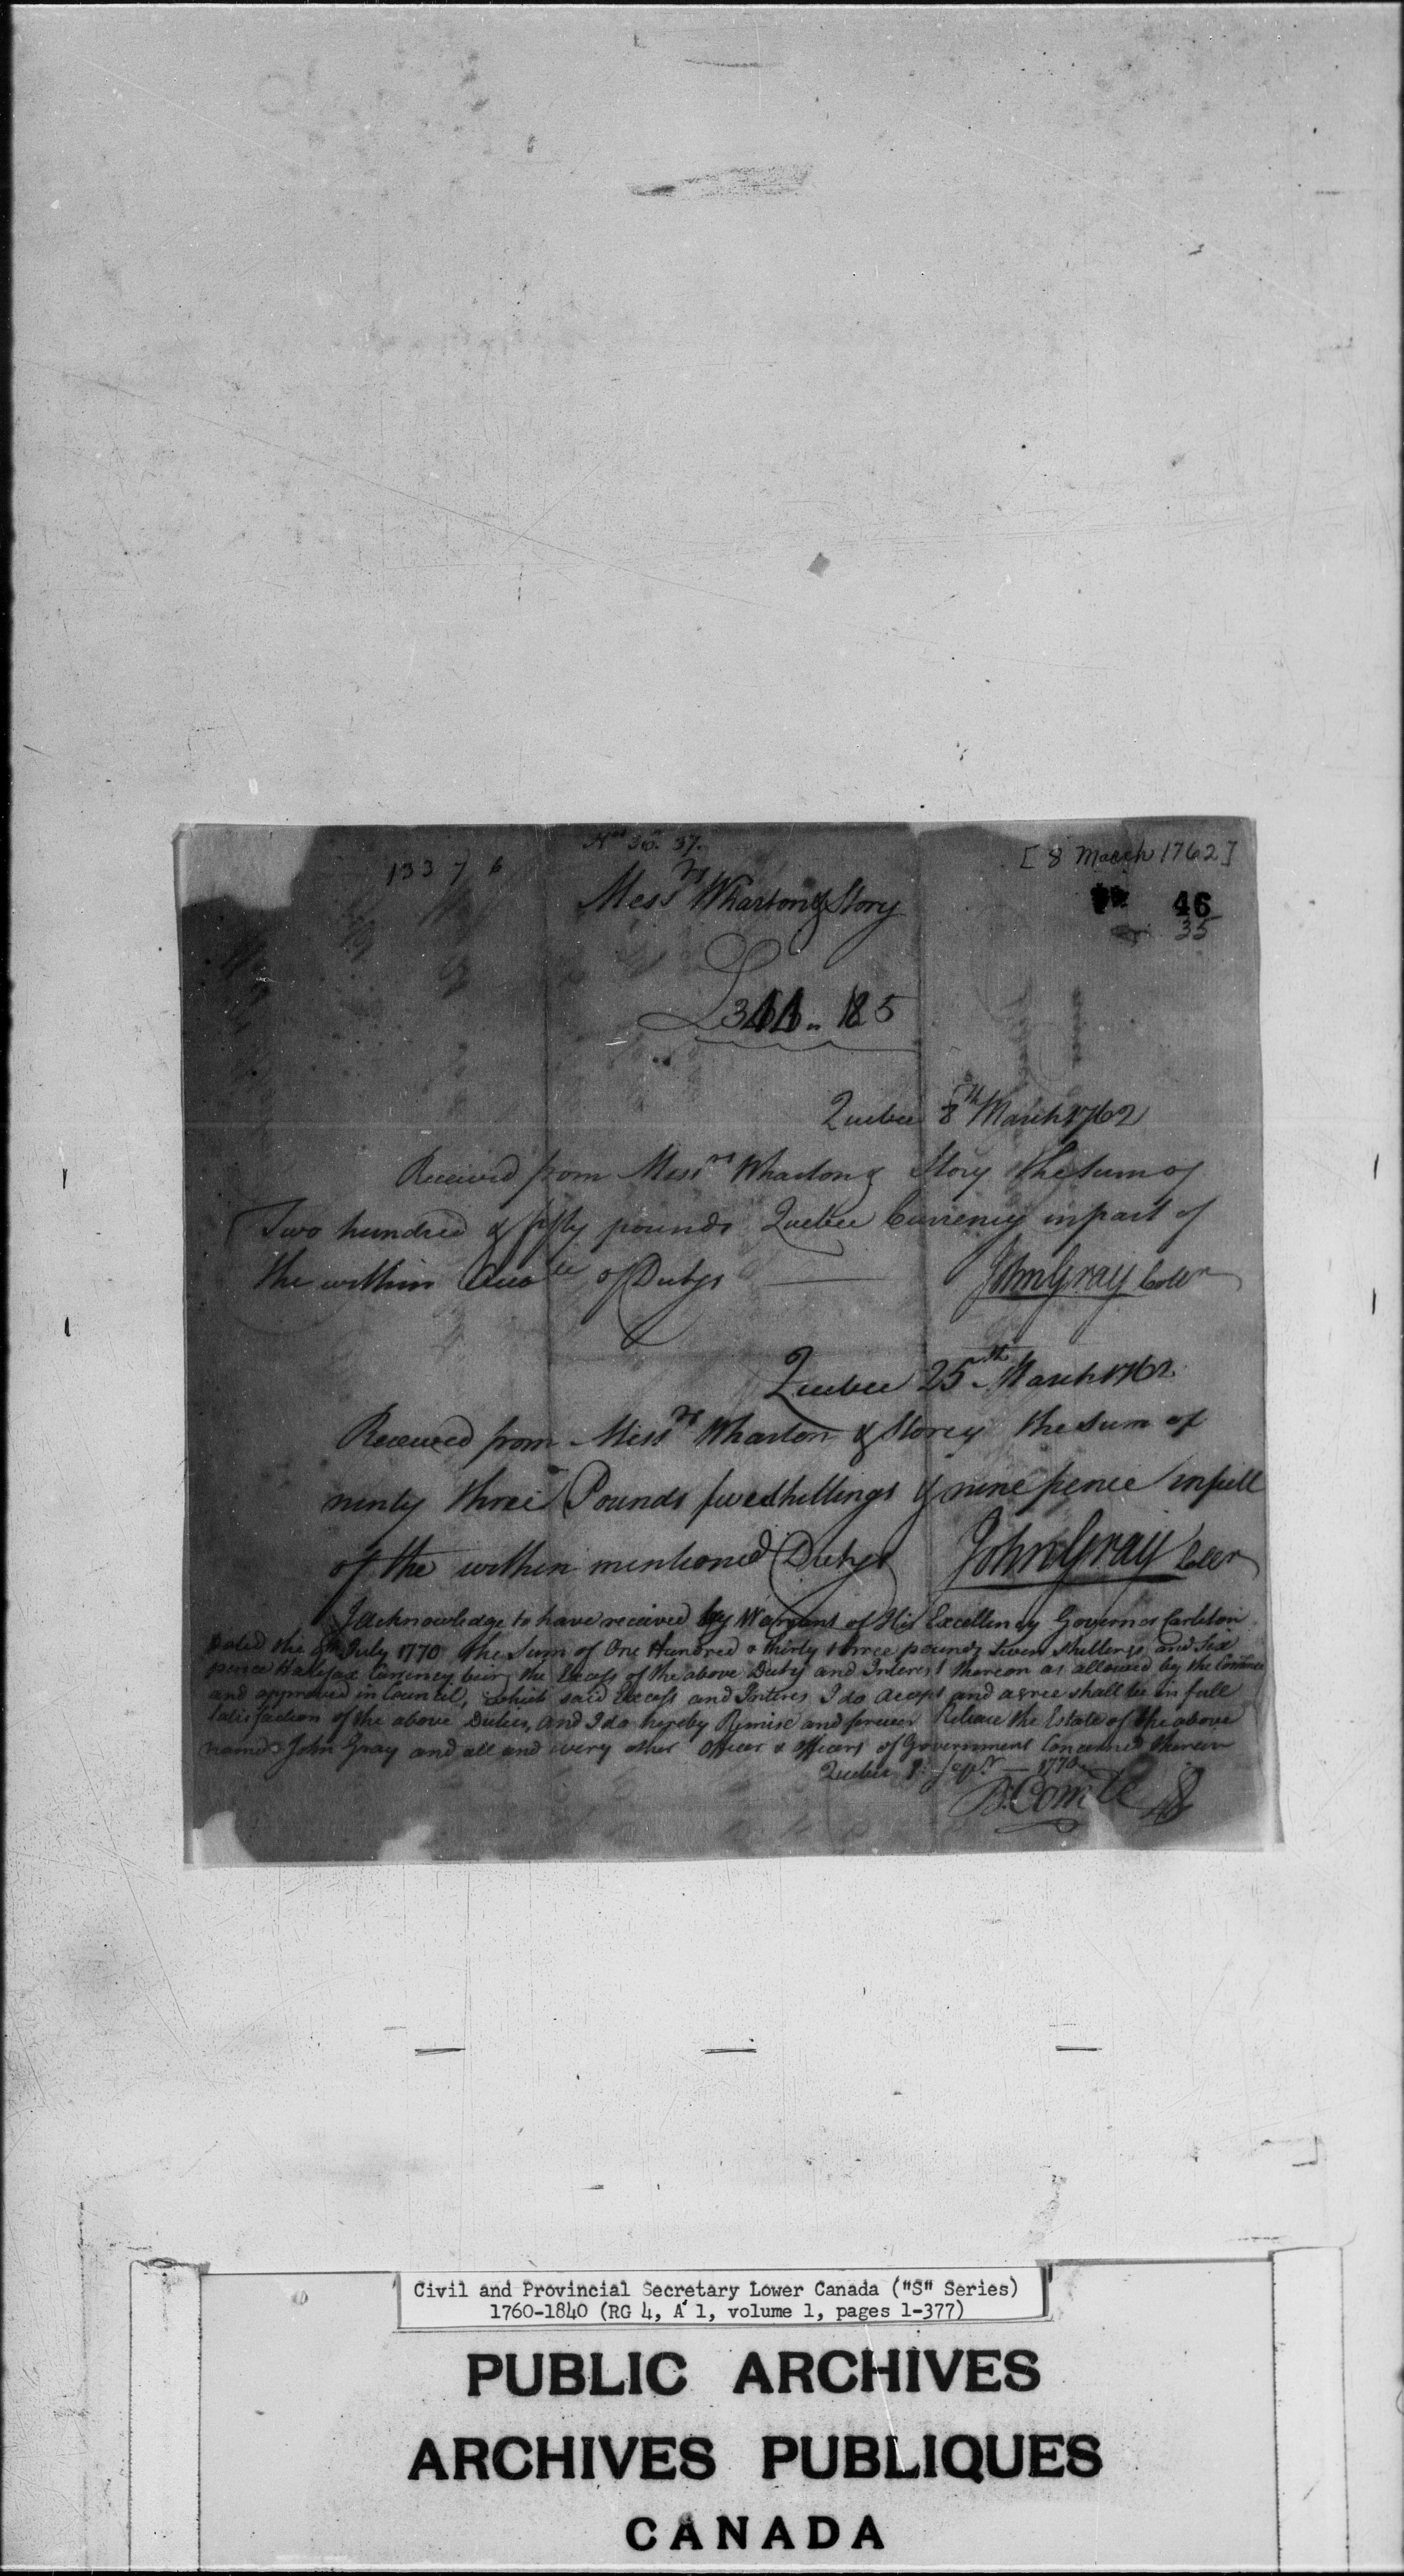 Nos 36. 37.
133 7 6
[8 March 1762]
Messrs Wharton & Story
46
35
Quebec 8th March 1762
Received from Messrs Wharton & Story the Sum of
Two hundred & fifty pounds Quebec Currency in part of
the within of Dutys John Gray Collr
Quebec 25th March 1762
Received from Messrs Wharton & Storey the Sum of
ninty three Pounds five shillings & nine pence in full
of the within mentioned Dutys John Gray Collr
I acknowledge to have received by Warrant of His Excellency Governor Carleton
Dated the 6th July 1770 the Sum of One Hundred & thirty three pounds seven shillings and Six
pence Halifax Currency being the Excess of the above Duty and Interest thereon as allowed by the
and approved in Council, which said Excess and Interes I do Accept and agree shall be in full
Satisfaction of the above Duties, and I do hereby Remise and forever Release the Estate of the above
named John Gray and all and every other Officer & Officers of Government Concerned therein
Quebec Sepr 1770
B: Comte
Civil and Provincial Secretary Lower Canada ("S" Series)
1760-1840 (RG 4, A 1, volume 1, pages 1-377)
PUBLIC ARCHIVES
ARCHIVES PUBLIQUES
CANADA